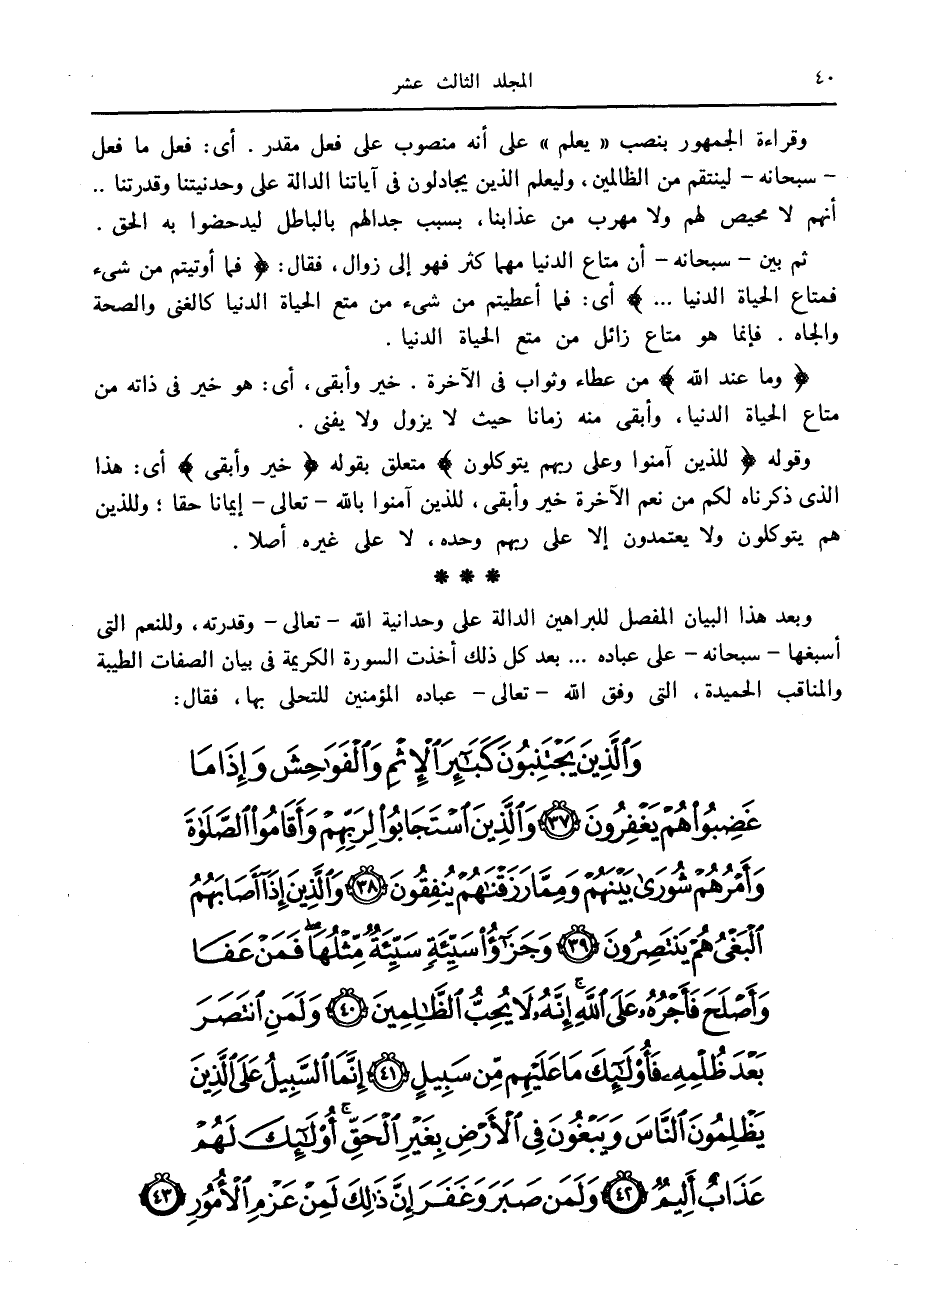 ٤٠
المجلد الثالث عشر
وقراءة الجمهور بنصب « يعلم » على أنه منصوب على فعل مقدر . أى: فعل ما فعل
– سبحانه – لينتقم من الظالمين، وليعلم الذين يجادلون فى آياتنا الدالة على وحدنيتنا وقدرتنا ..
أنهم لا محيص لهم ولا مهرب من عذابنا، بسبب جدالهم بالباطل ليدحضوا به الحق .
ثم بين – سبحانه – أن متاع الدنيا مهما كثر فهو إلى زوال، فقال: ﴿ فما أوتيتم من شىء
فمتاع الحياة الدنيا ... ﴾ أى: فما أعطيتم من شىء من متع الحياة الدنيا كالغنى والصحة
والجاه . فإنما هو متاع زائل من متع الحياة الدنيا .
﴿ وما عند الله ﴾ من عطاء وثواب فى الآخرة . خير وأبقى، أى: هو خير فى ذاته من
متاع الحياة الدنيا، وأبقى منه زمانا حيث لا يزول ولا يفنى .
وقوله ﴿ للذين آمنوا وعلى ربهم يتوكلون ﴾ متعلق بقوله ﴿ خير وأبقى ﴾ أى: هذا
الذى ذكرناه لكم من نعم الآخرة خير وأبقى، للذين آمنوا بالله – تعالى – إيمانا حقا ؛ وللذين
هم يتوكلون ولا يعتمدون إلا على ربهم وحده، لا على غيره أصلا .
* * *
وبعد هذا البيان المفصل للبراهين الدالة على وحدانية الله – تعالى – وقدرته، وللنعم التى
أسبغها – سبحانه – على عباده ... بعد كل ذلك أخذت السورة الكريمة فى بيان الصفات الطيبة
والمناقب الحميدة، التى وفق الله – تعالى – عباده المؤمنين للتحلى بها، فقال:
وَٱلَّذِينَ يَجْتَنِبُونَ كَبَٰٓئِرَ ٱلْإِثْمِ وَٱلْفَوَٰحِشَ وَإِذَا مَا
غَضِبُوا۟ هُمْ يَغْفِرُونَ ﴿٣٧﴾ وَٱلَّذِينَ ٱسْتَجَابُوا۟ لِرَبِّهِمْ وَأَقَامُوا۟ ٱلصَّلَوٰةَ
وَأَمْرُهُمْ شُورَىٰ بَيْنَهُمْ وَمِمَّا رَزَقْنَٰهُمْ يُنفِقُونَ ﴿٣٨﴾ وَٱلَّذِينَ إِذَآ أَصَابَهُمُ
ٱلْبَغْىُ هُمْ يَنتَصِرُونَ ﴿٣٩﴾ وَجَزَٰٓؤُا۟ سَيِّئَةٍ سَيِّئَةٌ مِّثْلُهَا ۖ فَمَنْ عَفَا
وَأَصْلَحَ فَأَجْرُهُۥ عَلَى ٱللَّهِ ۚ إِنَّهُۥ لَا يُحِبُّ ٱلظَّٰلِمِينَ ﴿٤٠﴾ وَلَمَنِ ٱنتَصَرَ
بَعْدَ ظُلْمِهِۦ فَأُو۟لَٰٓئِكَ مَا عَلَيْهِم مِّن سَبِيلٍ ﴿٤١﴾ إِنَّمَا ٱلسَّبِيلُ عَلَى ٱلَّذِينَ
يَظْلِمُونَ ٱلنَّاسَ وَيَبْغُونَ فِى ٱلْأَرْضِ بِغَيْرِ ٱلْحَقِّ ۚ أُو۟لَٰٓئِكَ لَهُمْ
عَذَابٌ أَلِيمٌ ﴿٤٢﴾ وَلَمَن صَبَرَ وَغَفَرَ إِنَّ ذَٰلِكَ لَمِنْ عَزْمِ ٱلْأُمُورِ ﴿٤٣﴾